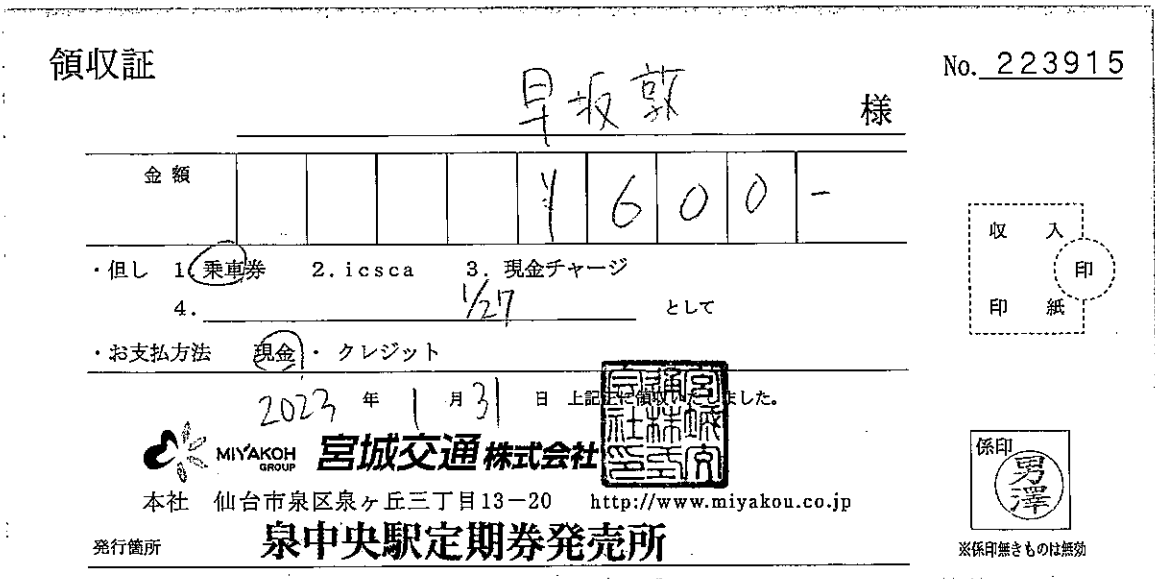 領収証
No. 223915
早坂敦 様
金額 ¥600-
・但し 1. 乗車券 2. icsca 3. 現金チャージ
4. 1/27 として
・お支払方法 現金・クレジット
2023 年 1 月 31 日 上記正に領収いたしました。
収入
印紙
印
MIYAKOH
GROUP
宮城交通株式会社
宮城交通株式会社印
本社 仙台市泉区泉ヶ丘三丁目13-20 http://www.miyakou.co.jp
発行箇所 泉中央駅定期券発売所
係印
男澤
※係印無きものは無効